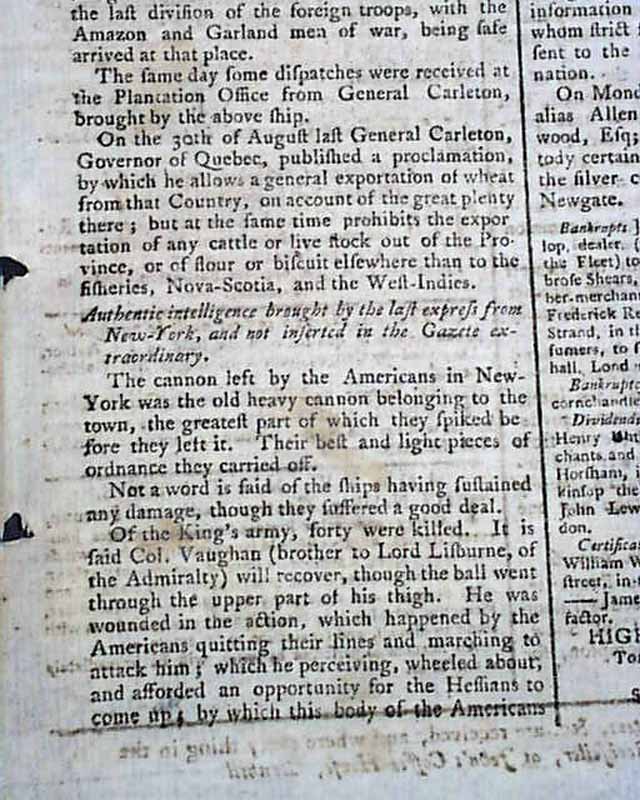 the laſt diviſion of the foreign troops, with the
Amazon and Garland men of war, being ſafe
arrived at that place.
The ſame day ſome diſpatches were received at
the Plantation Office from General Carleton,
brought by the above ſhip.
On the 30th of Auguſt laſt General Carleton,
Governor of Quebec, publiſhed a proclamation,
by which he allows a general exportation of wheat
from that Country, on account of the great plenty
there; but at the ſame time prohibits the expor
tation of any cattle or live ſtock out of the Pro-
vince, or of flour or biſcuit elſewhere than to the
fiſheries, Nova-Scotia, and the Weſt-Indies.
Authentic intelligence brought by the laſt expreſs from
New-York, and not inſerted in the Gazete ex-
traordinary.
The cannon left by the Americans in New-
York was the old heavy cannon belonging to the
town, the greateſt part of which they ſpiked be
fore they left it. Their beſt and light pieces of
ordnance they carried off.
Not a word is ſaid of the ſhips having ſuſtained
any damage, though they ſuffered a good deal.
Of the King's army, forty were killed. It is
ſaid Col. Vaughan (brother to Lord Liſburne, of
the Admiralty) will recover, though the ball went
through the upper part of his thigh. He was
wounded in the action, which happened by the
Americans quitting their lines and marching to
attack him; which he perceiving, wheeled about,
and afforded an opportunity for the Heſſians to
come up; by which this body of the Americans
information
whom ſtrict
ſent to the
nation.
On Mond
alias Allen
wood, Eſq;
tody certain
the ſilver c
Newgate.
Bankrupts
lop, dealer,
the Fleet) to
broſe Shears,
ber-merchan
Frederick Re
Strand, in t
fumers, to
hall, Lond
Bankrupt
cornchandle
Dividend
Henry
chants and
Horſham, i
kinſop the
John Lew
don.
Certifica
William W
ſtreet, in
—— Jame
factor.
HIGH
To